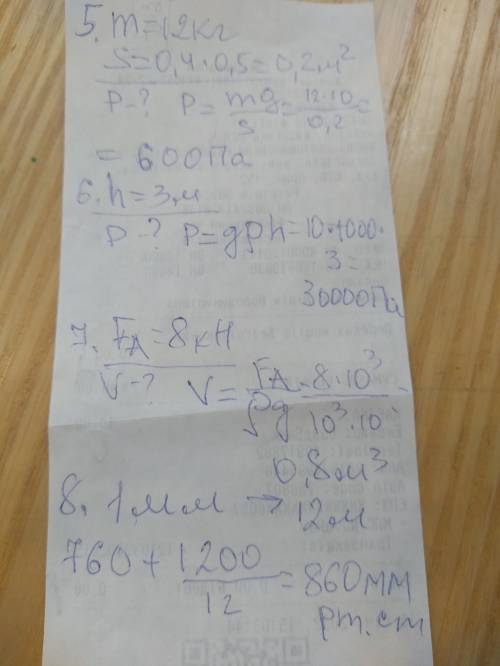 5. m=12кг
S=0,4·0,5=0,2м²
P-? P=mg/S=12·10/0,2=
=600Па
6. h=3м
P-? P=gρh=10·1000·
3=
30000Па
7. FA=8кН
V-? V=FA/ρg=8·10³/10³·10=
0,8м³
8. 1мм→12м
760+1200/12=860мм
рт.ст